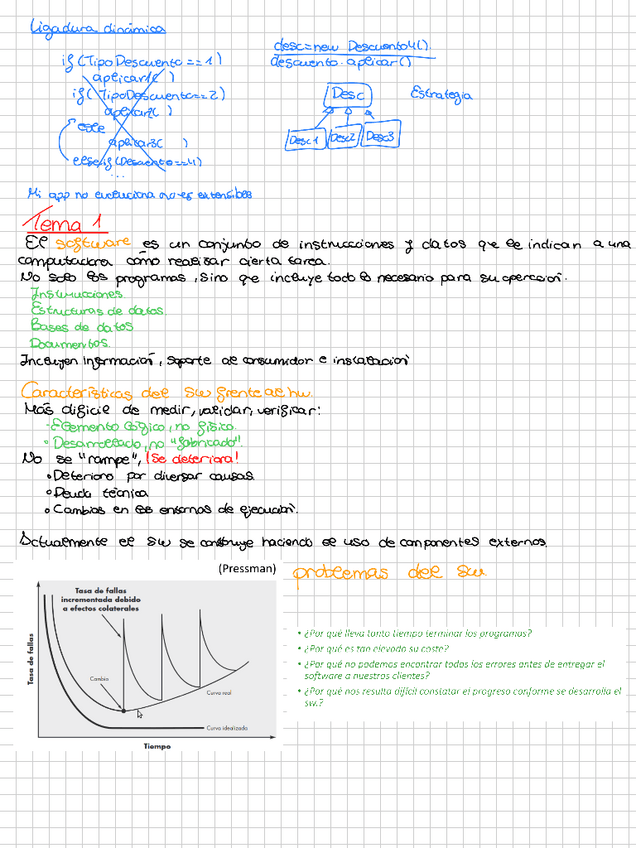 Ligadura dinámica
if (TipoDescuento == 1)
aplicar1( )
if (TipoDescuento == 2)
aplicar( )
else
aplicar3( )
elseif (Descuento == 4)
...
Mi app no evoluciona no es extensible
desc = new Descuento4().
descuento.aplicar()
Desc
Estrategia
Desc 1
Desc2
Desc3
Tema 1
El software es un conjunto de instrucciones y datos que le indican a una
computadora cómo realizar cierta tarea.
No solo los programas, sino que incluye todo lo necesario para su operación.
Instrucciones
Estructuras de datos
Bases de datos
Documentos.
Incluyen Información, soporte al consumidor e instalación
Características del sw frente al hw.
Más difícil de medir, validar, verificar:
· Elemento lógico, no físico.
· Desarrollado, no "fabricado".
No se "rompe", ¡Se deteriora!
• Deterioro por diversar causas
• Deuda técnica
• Cambios en los entornos de ejecución.
Actualmente el sw se construye haciendo el uso de componentes externos.
(Pressman)
Tasa de fallas
incrementada debido
a efectos colaterales
Tasa de fallas
Cambio
Curva real
Curva idealizada
Tiempo
problemas del sw
• ¿Por qué lleva tanto tiempo terminar los programas?
• ¿Por qué es tan elevado su coste?
• ¿Por qué no podemos encontrar todos los errores antes de entregar el
software a nuestros clientes?
• ¿Por qué nos resulta difícil constatar el progreso conforme se desarrolla el
sw.?